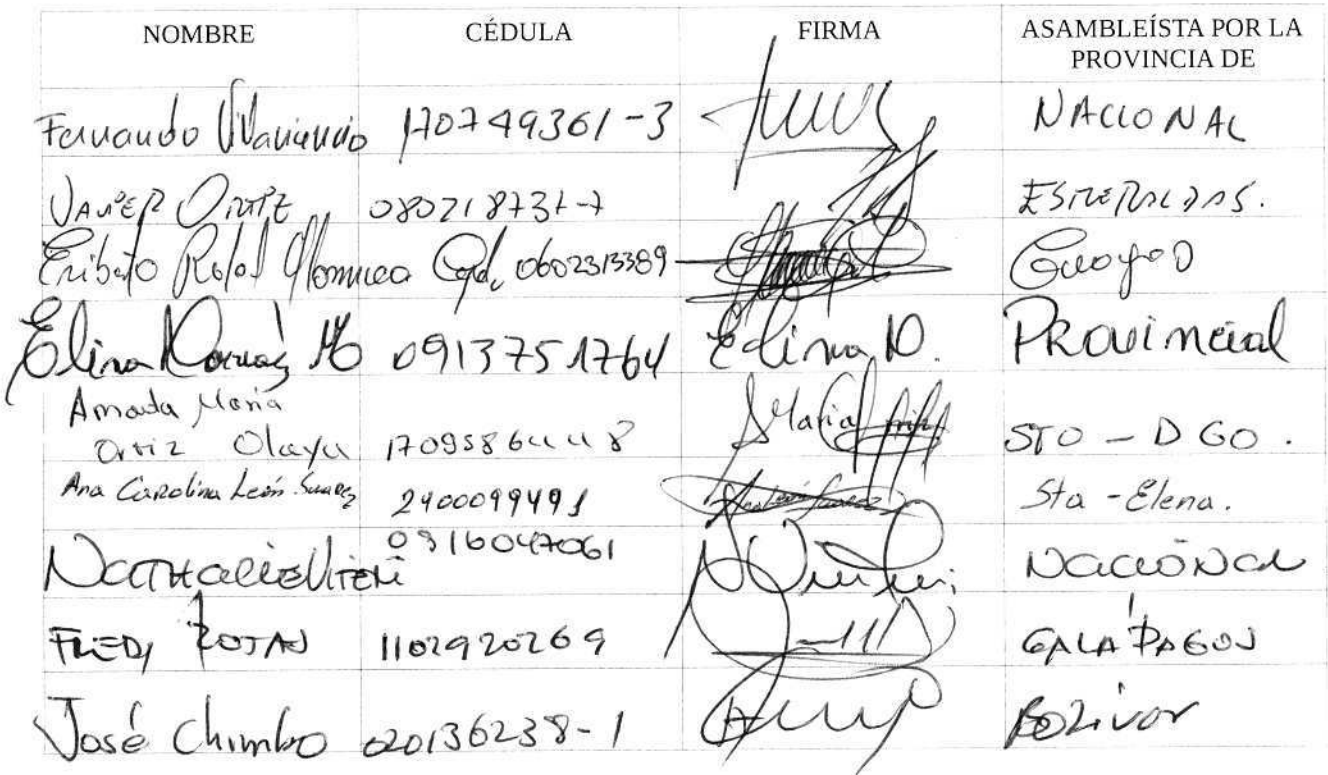 NOMBRE CÉDULA FIRMA ASAMBLEÍSTA POR LA
PROVINCIA DE
Fernando Villavicencio 170749361-3 NACIONAL
JAVIER ORTIZ 080218731-7 ESMERALDAS.
0602313389
Elina Narváez M 0913751764 Elina N. PROVINCIAL
Amada María
Ortiz Olaya 1709586448 María Ortiz STO - DGO.
Ana Carolina León Suarez 2400099491 Sta - Elena.
NATHALIE VITERI 0916047061 NACIONAL
FREDY ROJAS 1102920269 GALAPAGOS
José Chimbo 020136238-1 BOLIVAR